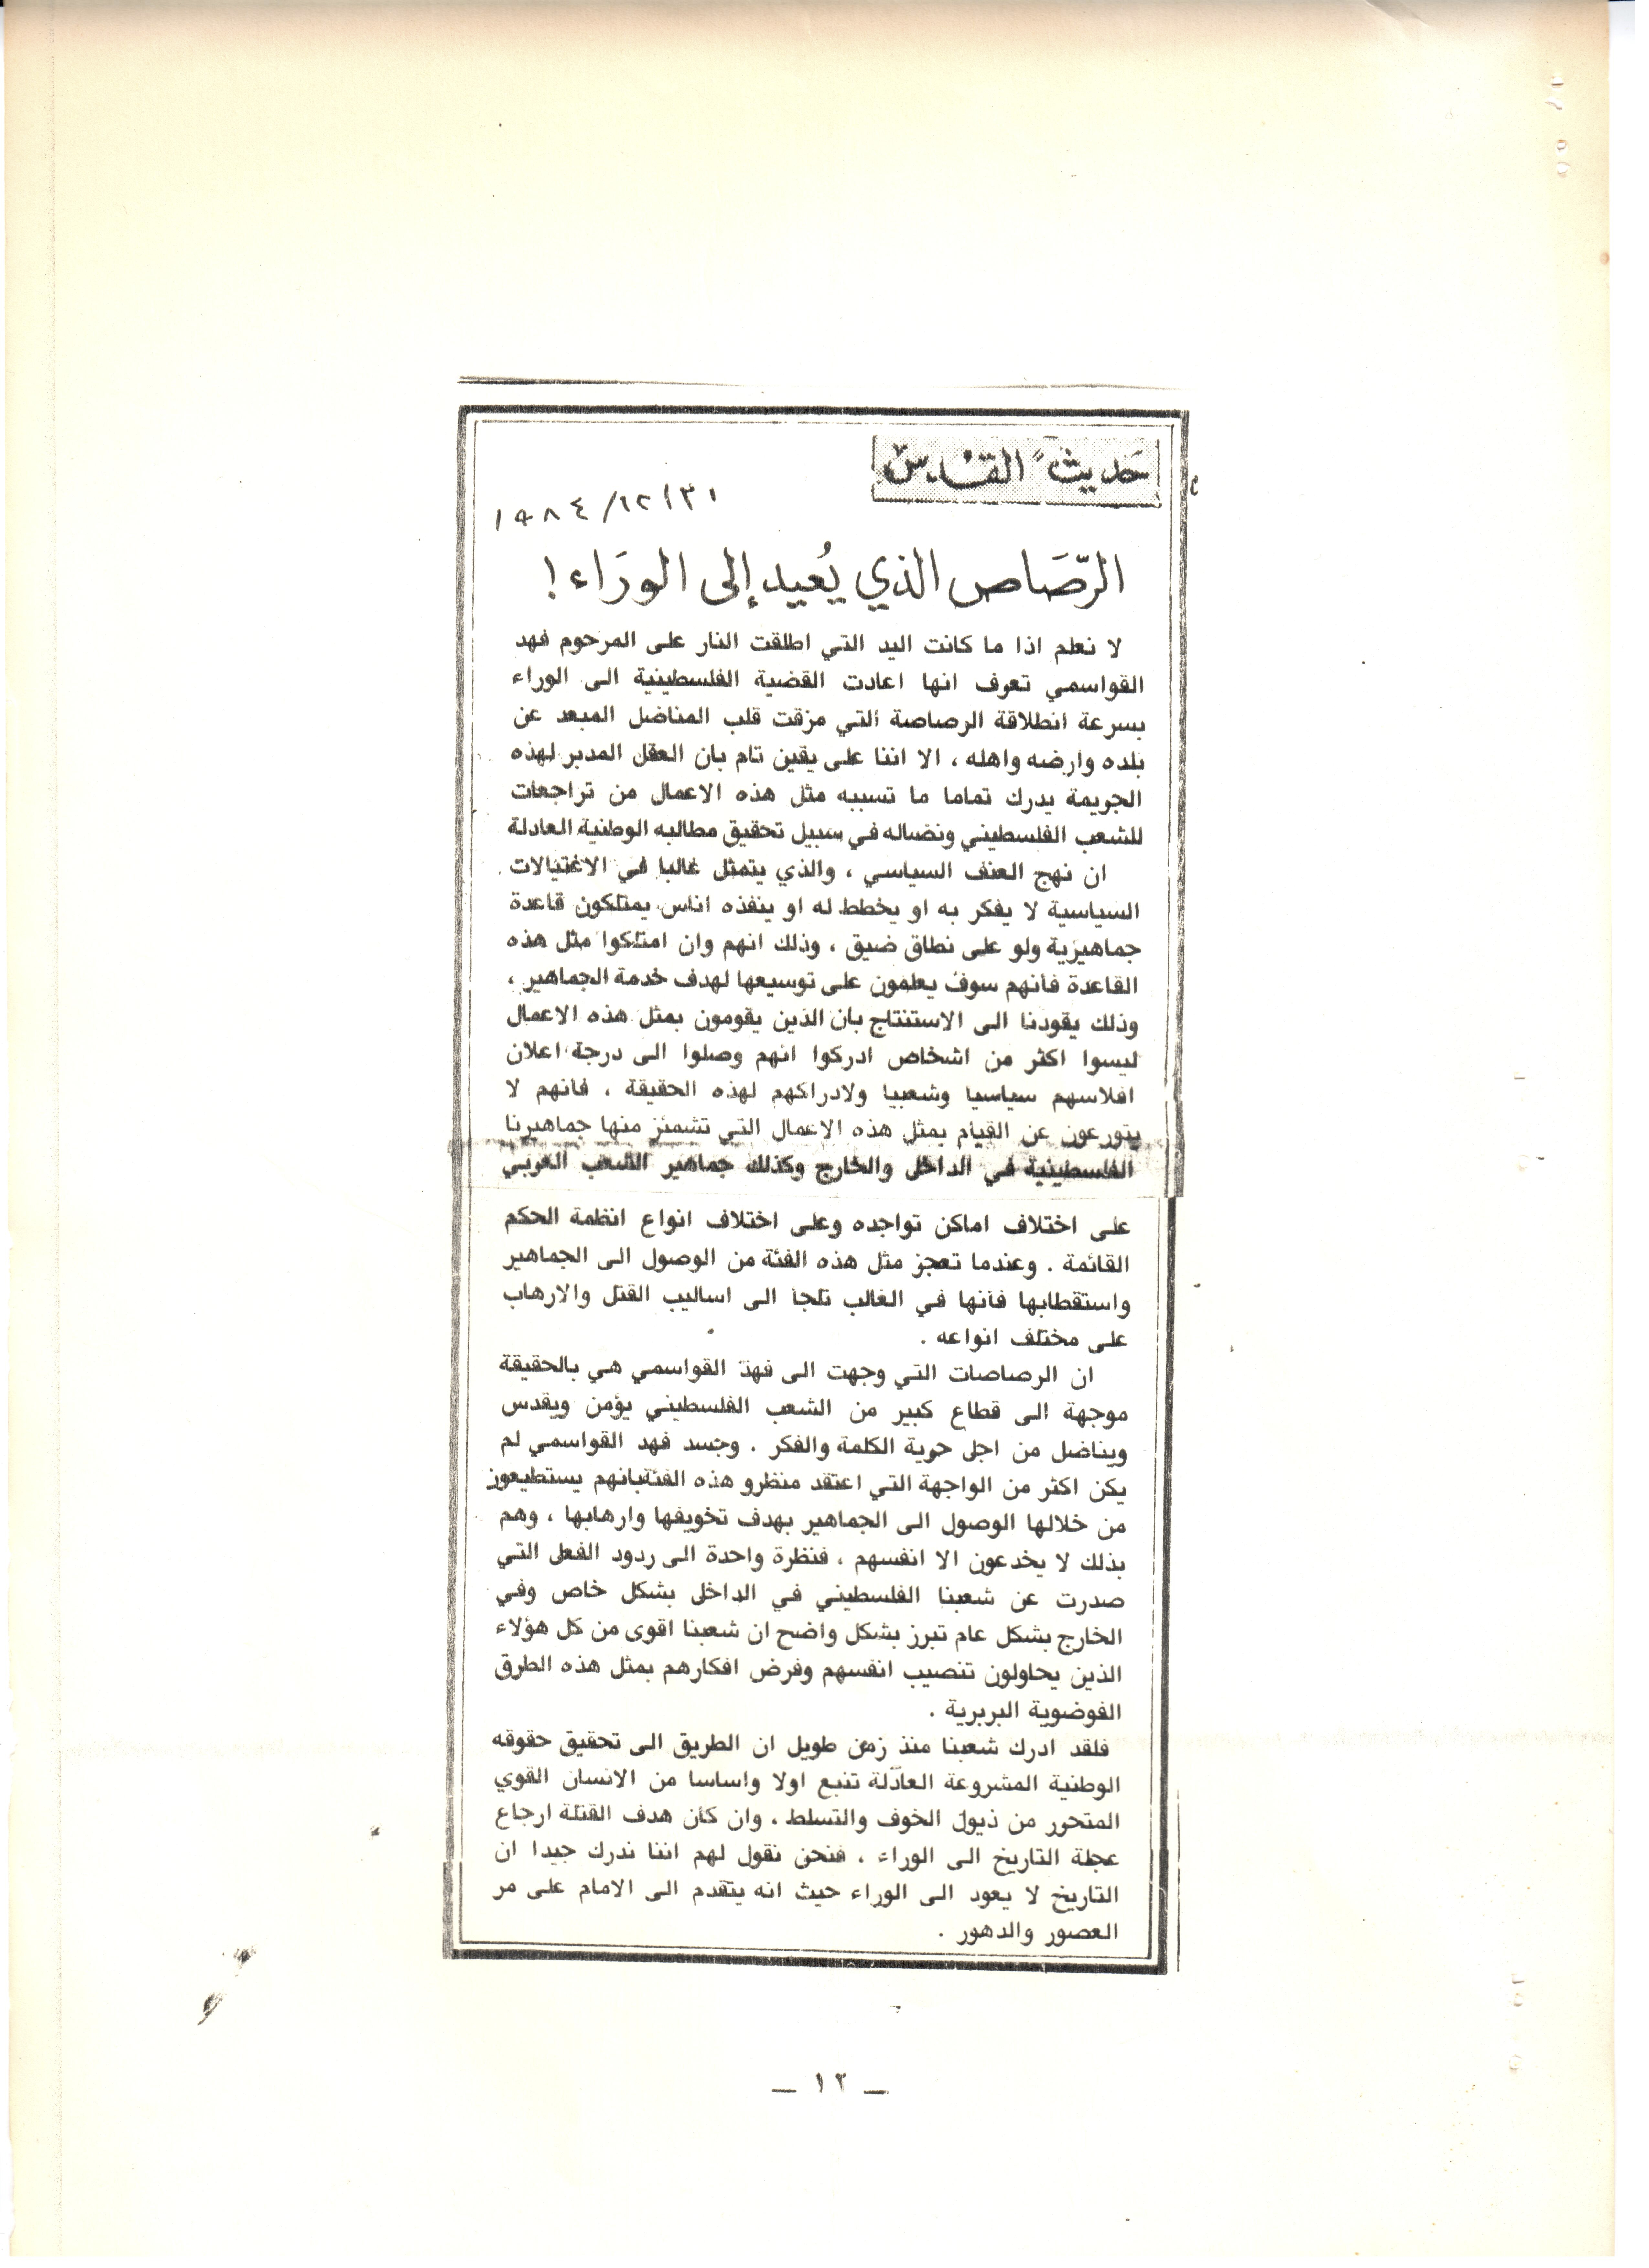 حديث القدس
١٩٨٤/١٢/٣١
الرّصَاص الذي يُعيد إلى الورَاء !
لا نعلم اذا ما كانت اليد التي اطلقت النار على المرحوم فهد
القواسمي تعرف انها اعادت القضية الفلسطينية الى الوراء
بسرعة انطلاقة الرصاصة التي مزقت قلب المناضل المبعد عن
بلده وارضه واهله ، الا اننا على يقين تام بان العقل المدبر لهذه
الجريمة يدرك تماما ما تسببه مثل هذه الاعمال من تراجعات
للشعب الفلسطيني ونضاله في سبيل تحقيق مطالبه الوطنية العادلة
ان نهج العنف السياسي ، والذي يتمثل غالبا في الاغتيالات
السياسية لا يفكر به او يخطط له او ينفذه اناس يمتلكون قاعدة
جماهيرية ولو على نطاق ضيق ، وذلك انهم وان امتلكوا مثل هذه
القاعدة فانهم سوف يعلمون على توسيعها لهدف خدمة الجماهير ،
وذلك يقودنا الى الاستنتاج بان الذين يقومون بمثل هذه الاعمال
ليسوا اكثر من اشخاص ادركوا انهم وصلوا الى درجة اعلان
افلاسهم سياسيا وشعبيا ولادراكهم لهذه الحقيقة ، فانهم لا
يتورعون عن القيام بمثل هذه الاعمال التي تشمئز منها جماهيرنا
الفلسطينية في الداخل والخارج وكذلك جماهير الشعب العربي
على اختلاف اماكن تواجده وعلى اختلاف انواع انظمة الحكم
القائمة . وعندما تعجز مثل هذه الفئة من الوصول الى الجماهير
واستقطابها فانها في الغالب تلجأ الى اساليب القتل والارهاب
على مختلف انواعه .
ان الرصاصات التي وجهت الى فهد القواسمي هي بالحقيقة
موجهة الى قطاع كبير من الشعب الفلسطيني يؤمن ويقدس
ويناضل من اجل حرية الكلمة والفكر . وجسد فهد القواسمي لم
يكن اكثر من الواجهة التي اعتقد منظرو هذه الفئةبانهم يستطيعون
من خلالها الوصول الى الجماهير بهدف تخويفها وارهابها ، وهم
بذلك لا يخدعون الا انفسهم ، فنظرة واحدة الى ردود الفعل التي
صدرت عن شعبنا الفلسطيني في الداخل بشكل خاص وفي
الخارج بشكل عام تبرز بشكل واضح ان شعبنا اقوى من كل هؤلاء
الذين يحاولون تنصيب انفسهم وفرض افكارهم بمثل هذه الطرق
الفوضوية البربرية .
فلقد ادرك شعبنا منذ زمن طويل ان الطريق الى تحقيق حقوقه
الوطنية المشروعة العادلة تنبع اولا واساسا من الانسان القوي
المتحرر من ذيول الخوف والتسلط ، وان كان هدف القتلة ارجاع
عجلة التاريخ الى الوراء ، فنحن نقول لهم اننا ندرك جيدا ان
التاريخ لا يعود الى الوراء حيث انه يتقدم الى الامام على مر
العصور والدهور .
ـ ١٢ ـ